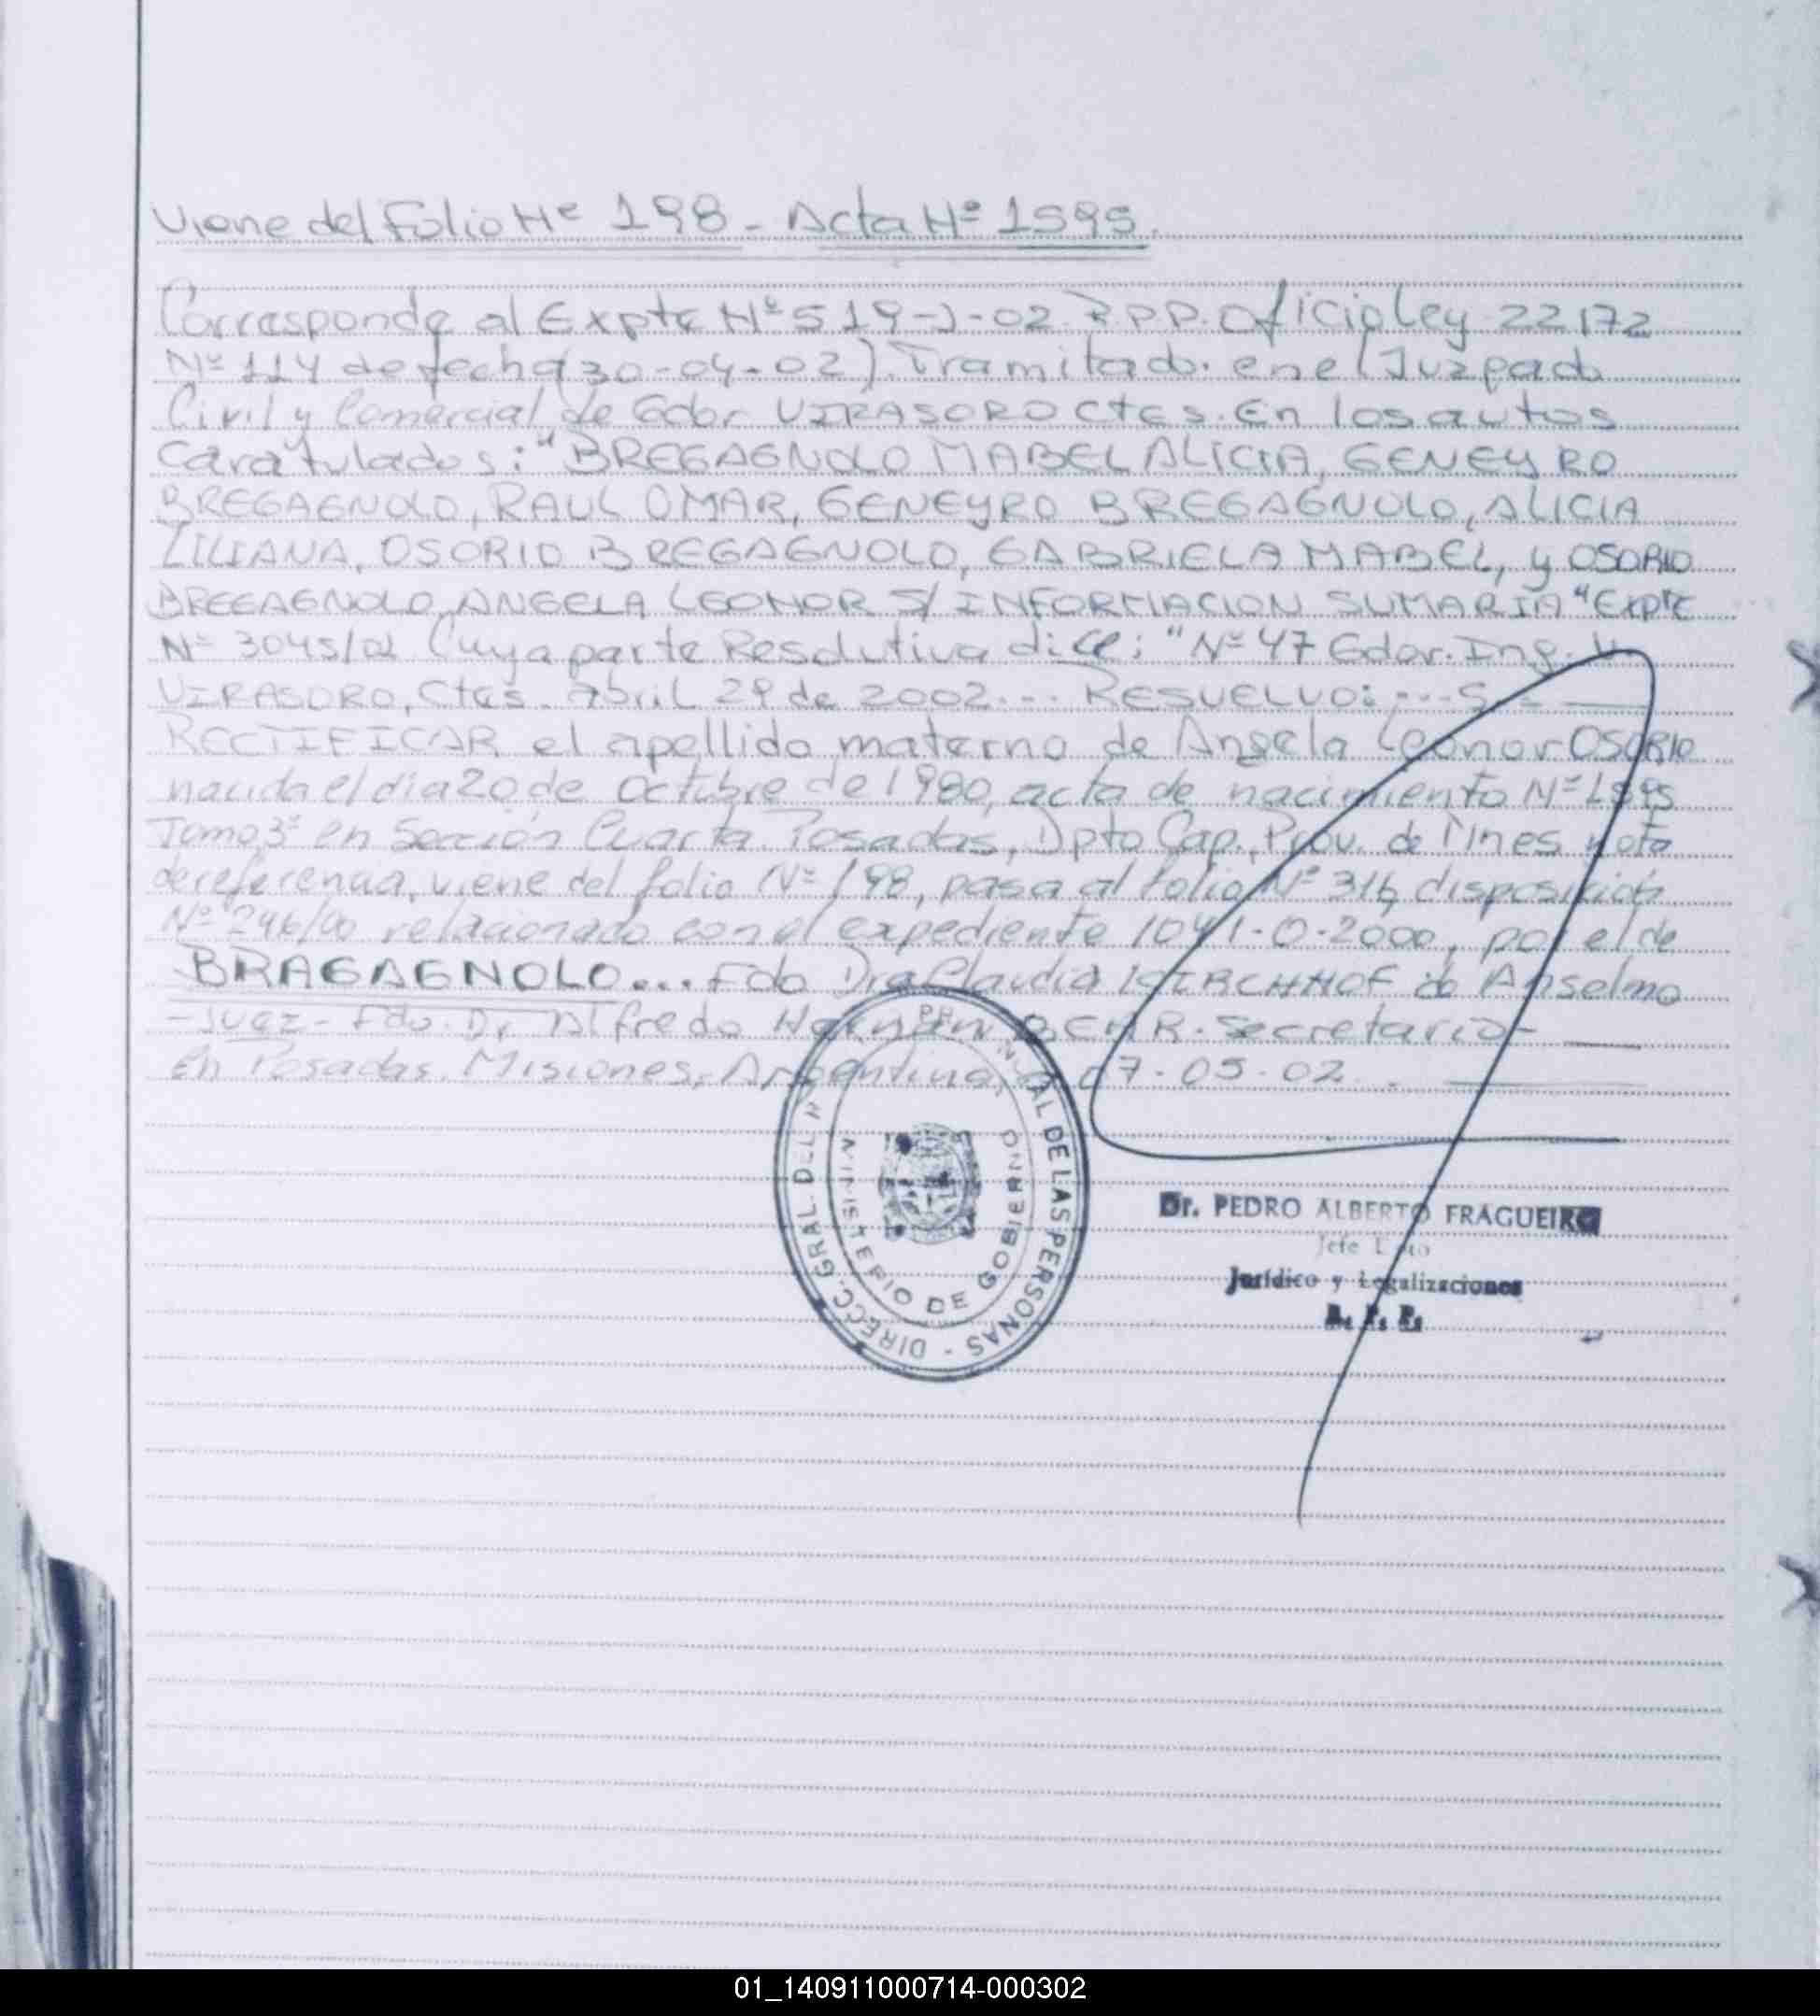 Viene del Folio Nº 198 - Acta Nº 1595.
Corresponde al Expte Nº 519-J-02 R.P.P. Oficio Ley 22172
Nº 114 de fecha 30-04-02). Tramitado. en el Juzgado
Civil y Comercial de Gdor VIRASORO Ctes. En los autos
caratulados: "BREGAGNOLO MABEL ALICIA, GENEYRO
BREGAGNOLO, RAUL OMAR, GENEYRO BREGAGNOLO, ALICIA
LILIANA, OSORIO BREGAGNOLO, GABRIELA MABEL, y OSORIO
BREGAGNOLO, ANGELA LEONOR S/ INFORMACION SUMARIA "Expte
Nº 3045/01 Cuya parte Resolutiva dice: "Nº 47 Gdor. Ing. V
VIRASORO, Ctes. Abril 29 de 2002... RESUELVO: ...5 -
RECTIFICAR el apellido materno de Angela Leonor OSORIO
nacida el día 20 de Octubre de 1980, acta de nacimiento Nº 1595
Tomo 3º en Sección Cuarta Posadas, Dpto Cap., Prov. de Mnes nota
de referencia, viene del folio Nº 198, pasa al folio Nº 316, disposición
Nº 246/00 relacionado con el expediente 1041-O-2000, por el de
BRAGAGNOLO... Fdo Dra Claudia KIRCHHOF de Anselmo
- Juez - Fdo. Dr Alfredo Hernán BEHR. Secretario -
En Posadas. Misiones, Argentina, a 07-05-02.
DIRECC. GRAL. DEL R. PP. NCIAL DE LAS PERSONAS -
MINISTERIO DE GOBIERNO
Dr. PEDRO ALBERTO FRAGUEIRO
Jefe Dpto
Jurídico y Legalizaciones
R. P. P.
01_140911000714-000302